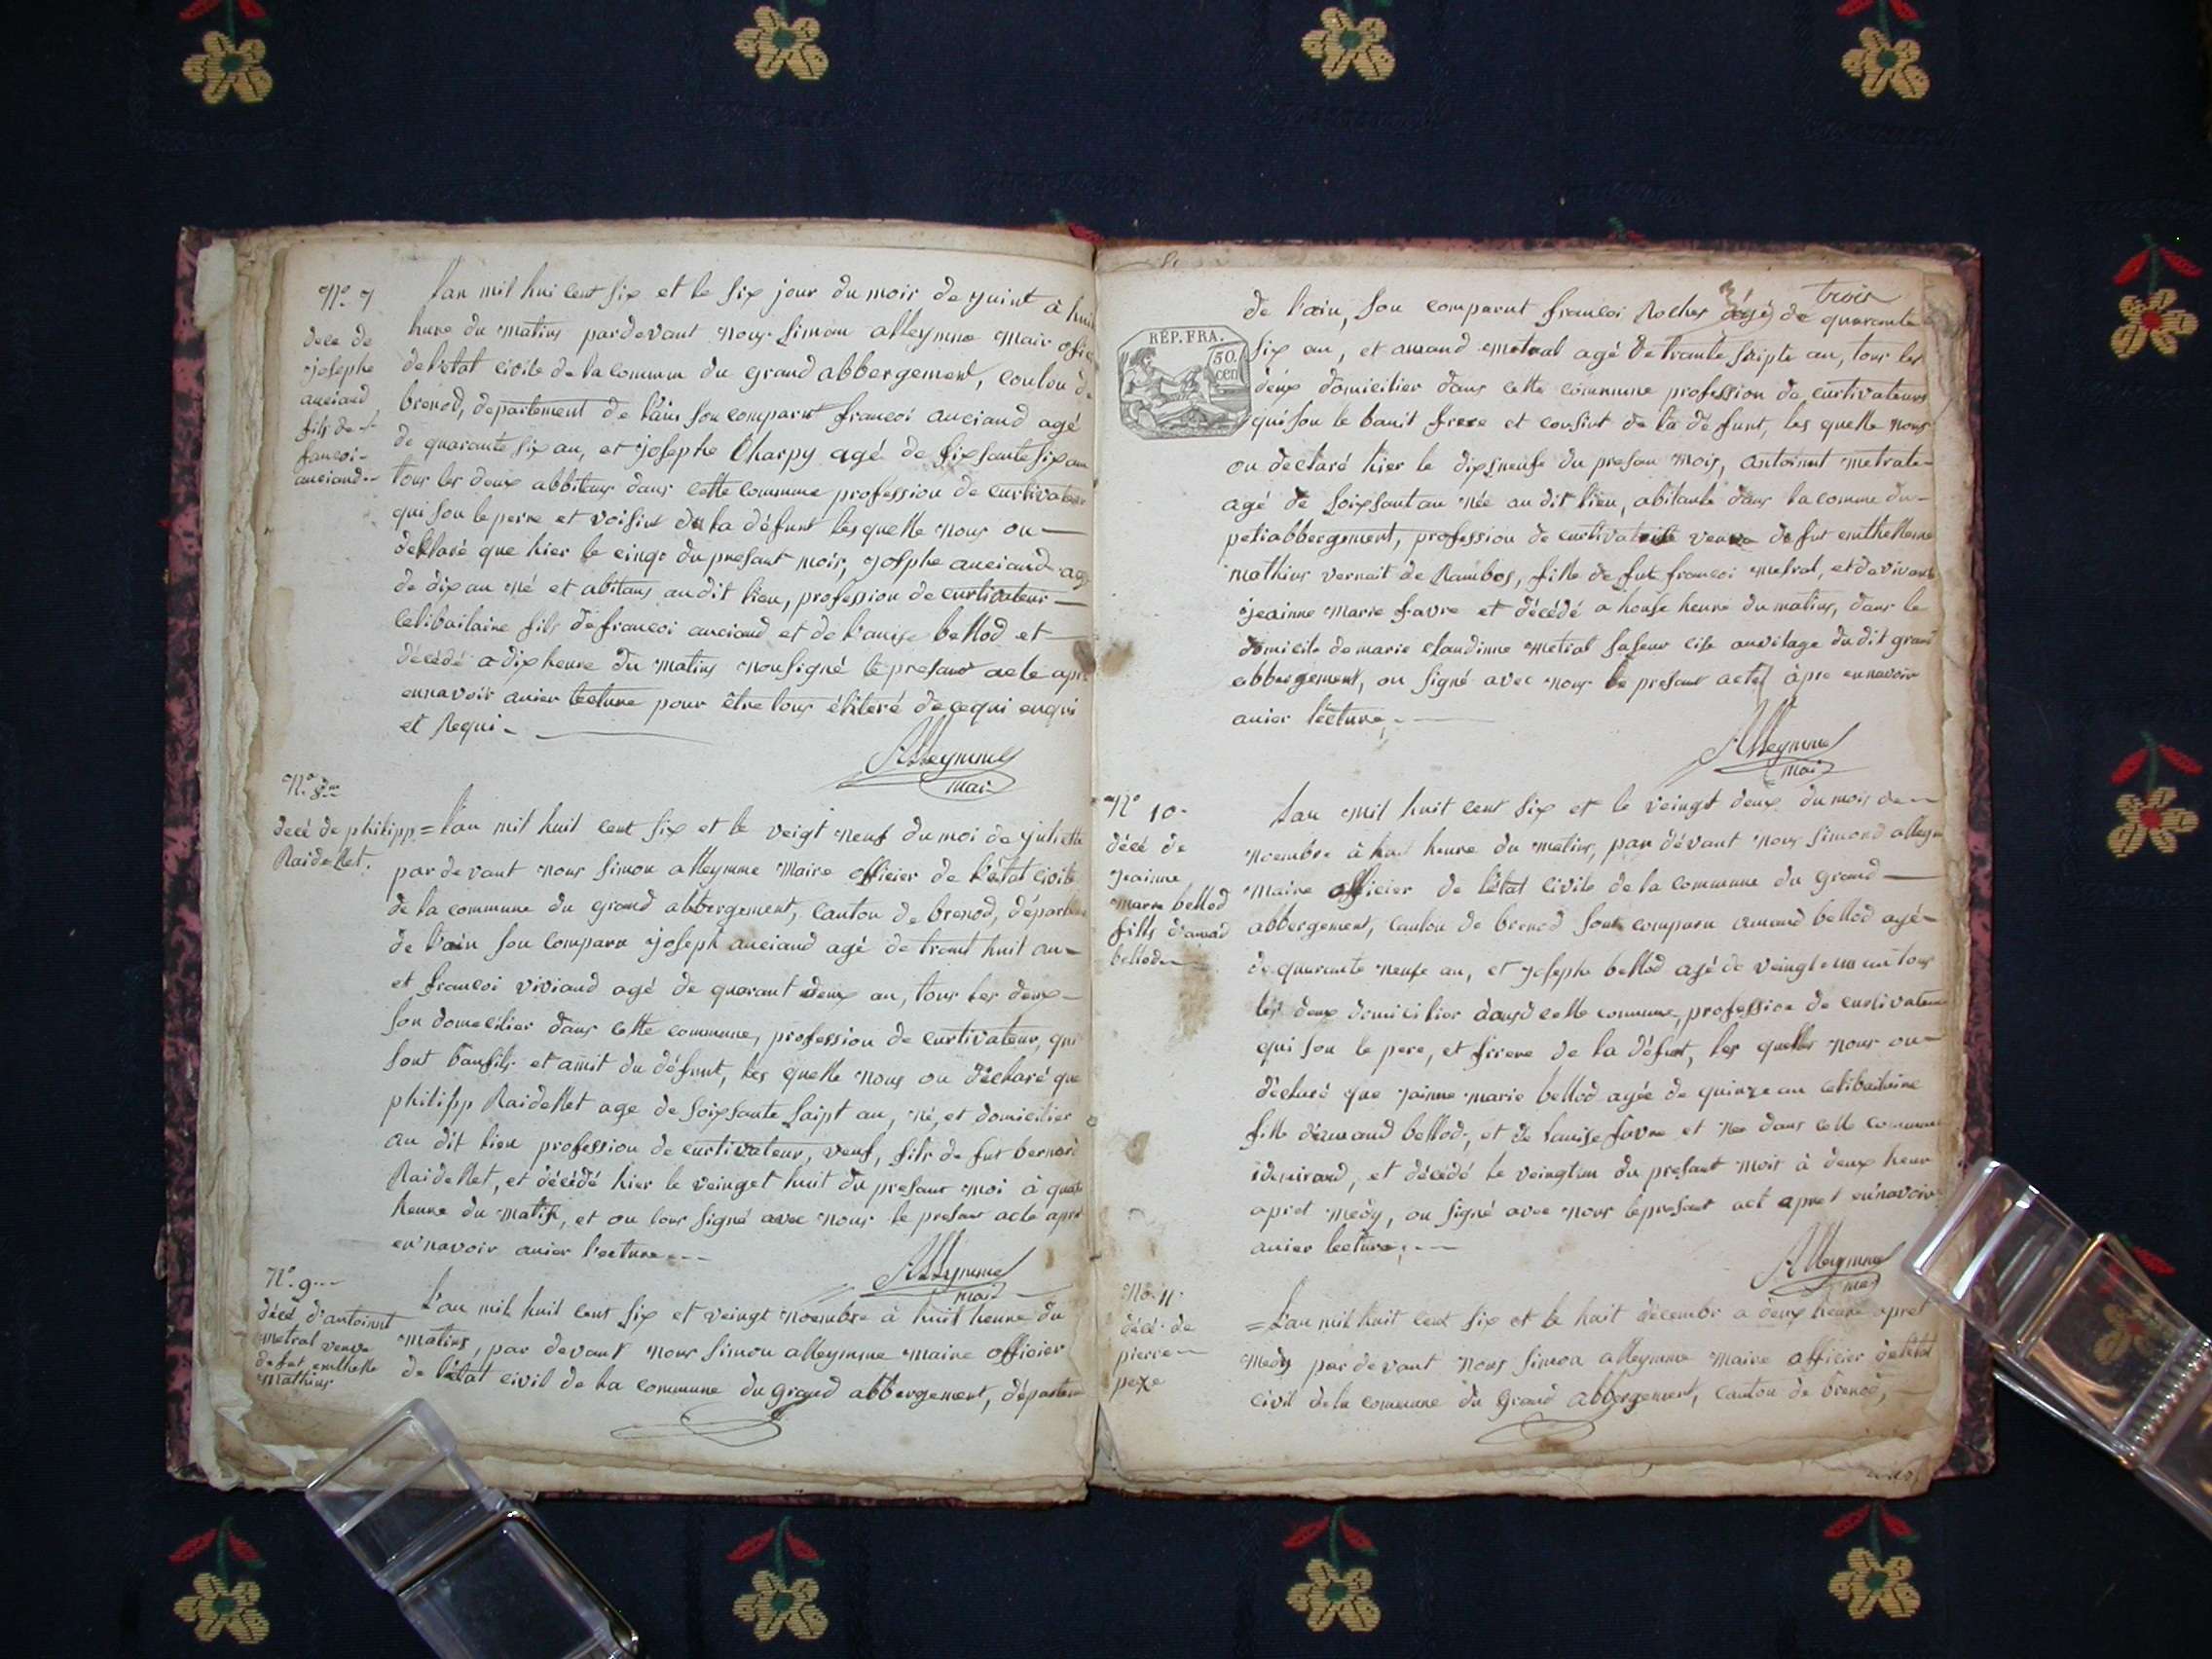 N.o 7
dece de
josephe
anciand
fils de
francoi
anciand
Lan mil hui cent six et le six jour du mois de juint à huit
hure du matins pardevant nous Simon alleymme mair
de létat civile de la commun du grand abbergement,
brenod, departement de lain son comparut francoi anciand agé
de quarante six an, et josephe Charpy agé de sixsante six an
tous les deux abbitans dans cette commune profession de curtivateur
qui son le perre et voisint de la défunt lesquelle nous on
declaré que hier le cinqe du presant mois, josphe anciand agé
de dix an né et abitans audit lieu, profession de curtivateur
celibailaine fils de francoi anciand et de l'ouise bellod et
décédé a dix heure du matins nousigné le presant acte apre
ennavoir anier lecture pour être tous
et Requi
Alleymme
mai
N.o 8me
decé de philipp
Raidellet.
=l'an mil huil cent six et le veigt neuf du moi de juliette
par devant nous simon alleymme Maire officier de l'état civile
de la commune du grand abbergement, Canton de brenod, départeme
de l'ain son comparu joseph anciand agé de trant huit an
et francoi viviand agé de quarant deux an, tous les deux
son domecilier dans cette commune, profession de curtivateur, qui
sont baufils et amit du défunt, les quelle nous ou déclaré que
philipp Raidellet age de soixsante saipt an, né, et domicilier
au dit lieu profession de curtivateur, veuf, fils de fut bernard
Raidellet, et décédé hier le veinget huit du presant moi à quatr
heure du matin, et on tous signé avec nous le presant acte apre
en'navoir anier l'ecture
Alleymme
mai
N.o 9
décé d'antoinnt
metral veuve
de fut enthelle
Mathius
L'an mil huil cent six et veingt noembre à huit heure du
matins, par devant nous simon alleymme maire officier
de l'état civil de la commune du grand abbergement, départem
trois
de l'ain, son comparut francoi Rocher agé de quarante
RÉP. FRA.
50.
cen
six an, et amand metral agé de trante saipte an, tous les
deux domicilier dans cette commune profession de curtivateur
qui son le bauit frere et cousint de la défunt, les quelle nous
on declaré hier le dixsneufe du presan mois, antoinnt metrale
agé de soixsant an née audit lieu, abitante dans la comme du
petiabbergement, profession de curtivatrise veuve de fut enthelleme
mathius vernait de Rambos, fille de fut francoi metral, et de vivante
jeainne marie favre et décédé a honse heure du matins, dans le
domicile de marie claudinne metral saseur cise auvilage dudit grand
abbergement, on signé avec nous le presant acte àpre ennavoir
anier lècture
Alleymme
mai
N.o 10
décé de
jeainne
marie bellod
fills d'amad
bellod
Lan mil huit cent six et le veingt deux du mois de
noembre à huit heure du matins, par dévant nous simond alleym
maire officier de l'état civile de la commune du grand
abbergement, canton de brenod sont comparu amand bellod agé
de quarante neufe an, et josephe bellod agé de veingt un an tous
les deux domicilier dans cette commune, profession de curtivateur
qui son le pere, et frere de la défunt, les quelles nous on
déclaré que jainne marie bellod agée de quinze an celibailaine
fille d'amand bellod, et de louise favre et née dans cette commune
et décédé le veingtun du presant mois à deux heur
apret medy, on signé avec nous lepresant act apret en'navoir
anier lecture,
Alleymme
mai
No. 11.
décé de
pierre
pexe
=L'an mil huit cent six et le huit décembr a deux heure apret
medy par devant nous simon alleymme maire officier delétat
civil de la commune du grand abbergement, canton de brenod,